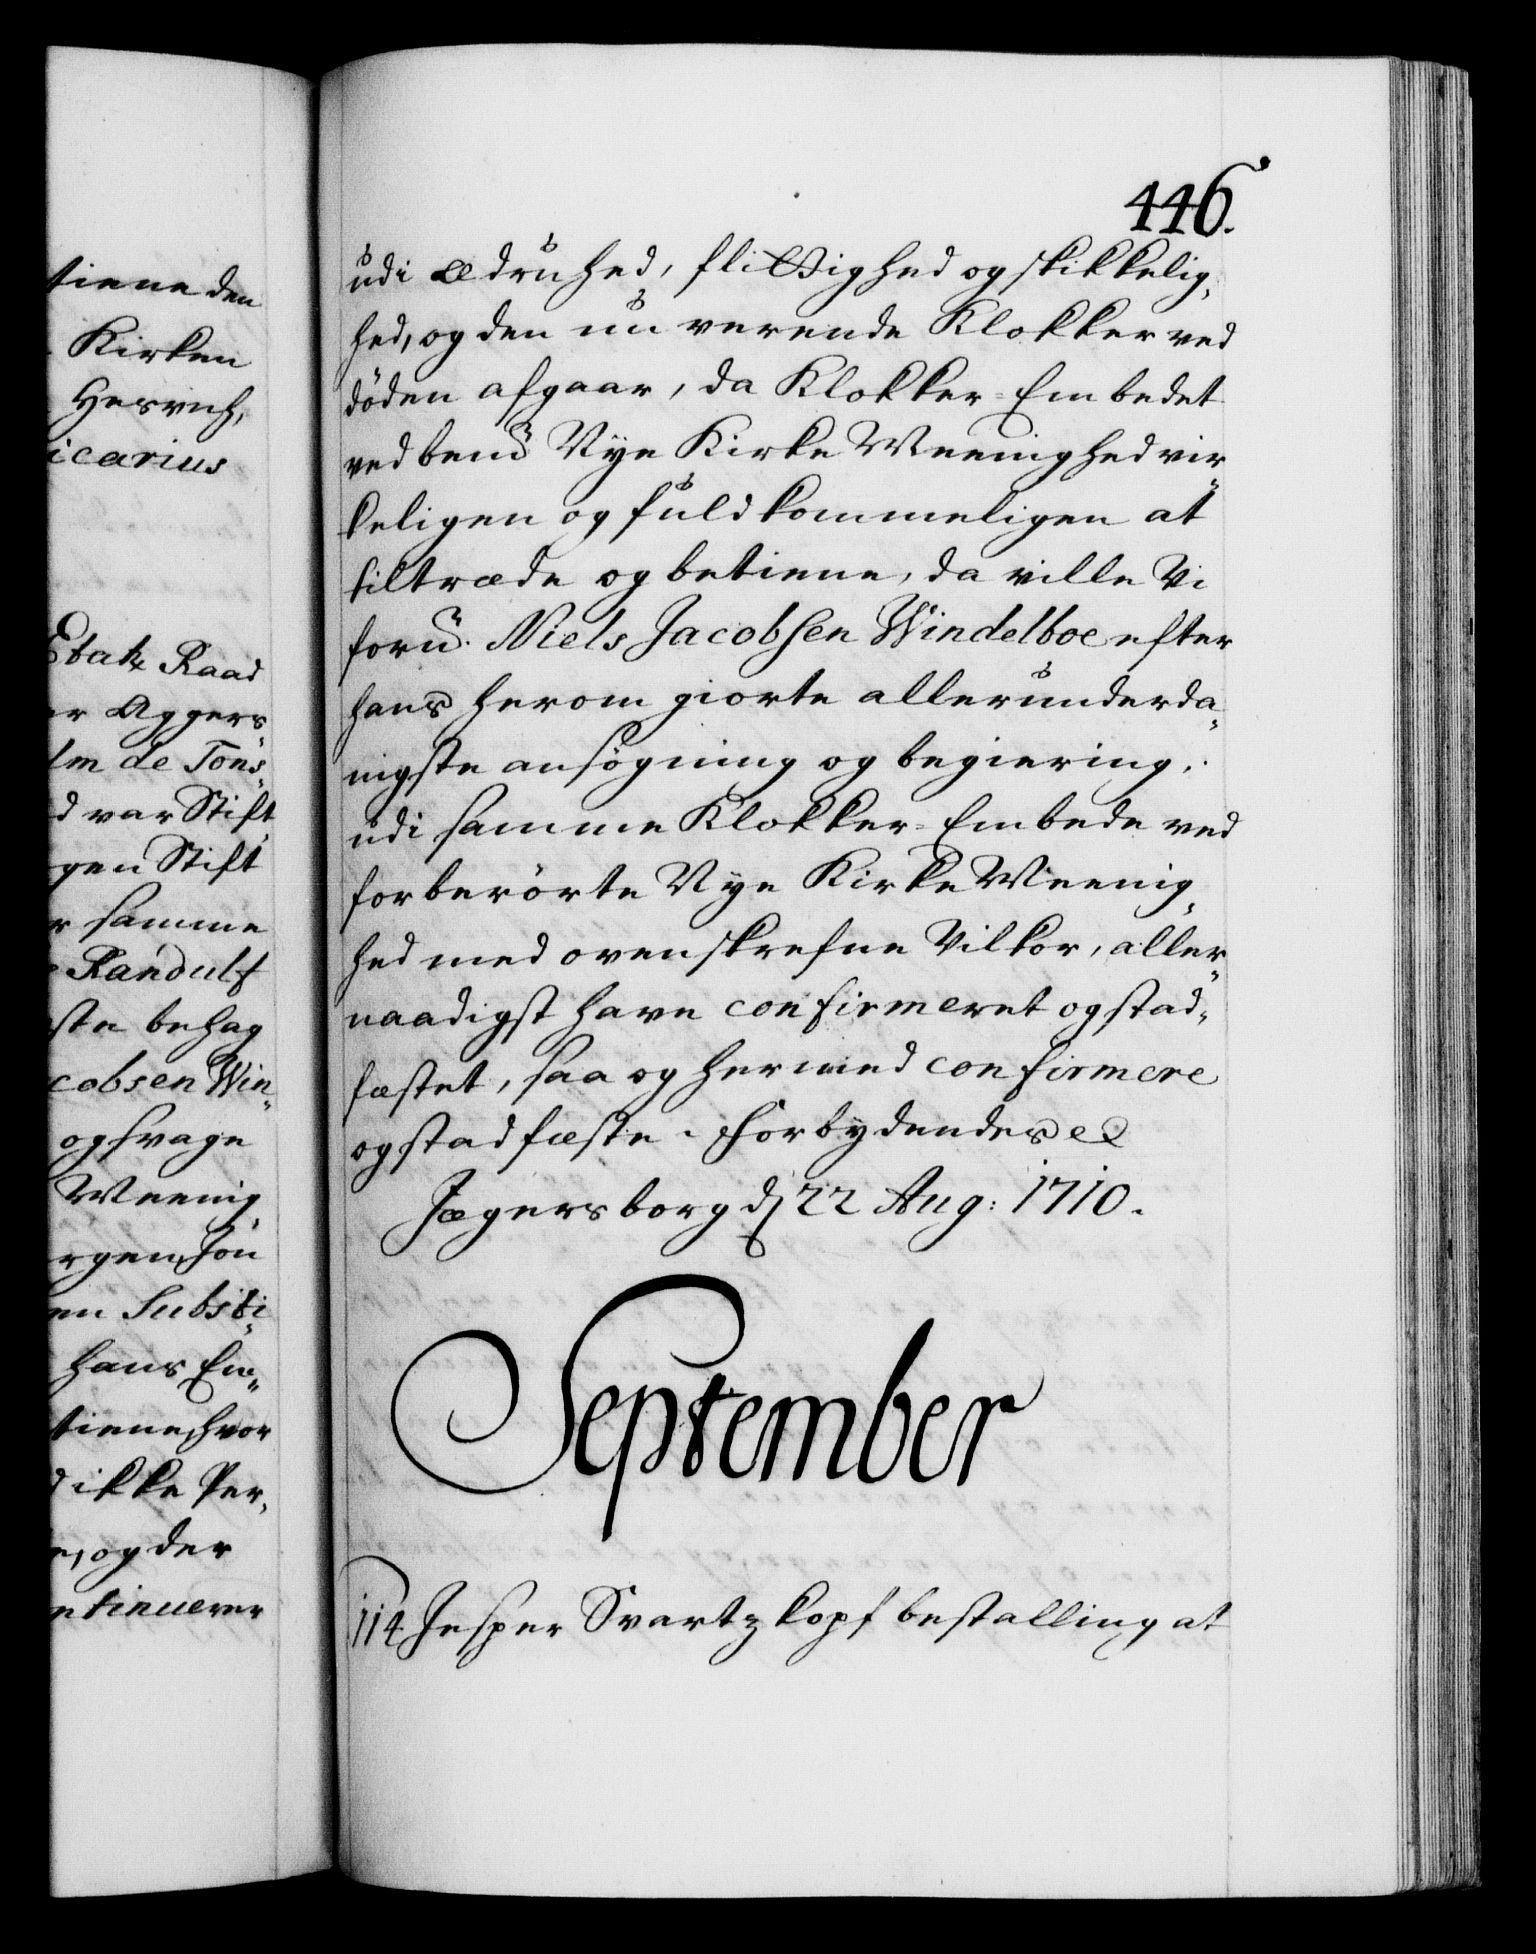 tiene den
Kirken
icarius
Etats Raad
er Aggers„
lm de Tons„
d var Stift„
gen Stift
r samme
Randulf
ste behag
cobsen Win„
og svage
Meenig„
rgen Jon
en Substi„
hans Em„
tiene, hvor
d ikke Per„
e, og der
ntinuerer
446.
udi ædruhed, flittighed og skikkelig„
hed, og den nu verende Klokker ved
döden afgaar, da Klokker-Embedet
ved bemte Nye Kirke Meenighed vir„
keligen og fuldkommeligen at
tiltræde og betiene, da ville Vi
fornte Niels Jacobsen Windelboe efter
hans herom giorte allerunderda„
nigste ansögning og begiering,
udi samme Klokker-Embede ved
forberörte Nye Kirke Meenig„
hed med ovenskrefne Vilkor, aller„
naadigst have confirmeret og stad„
fæstet, saa og hermed confirmere
og stadfæste. Forbydendes &
Jægersborg d 22 Aug: 1710.
September
114 Jesper Svartzkopf bestalling at